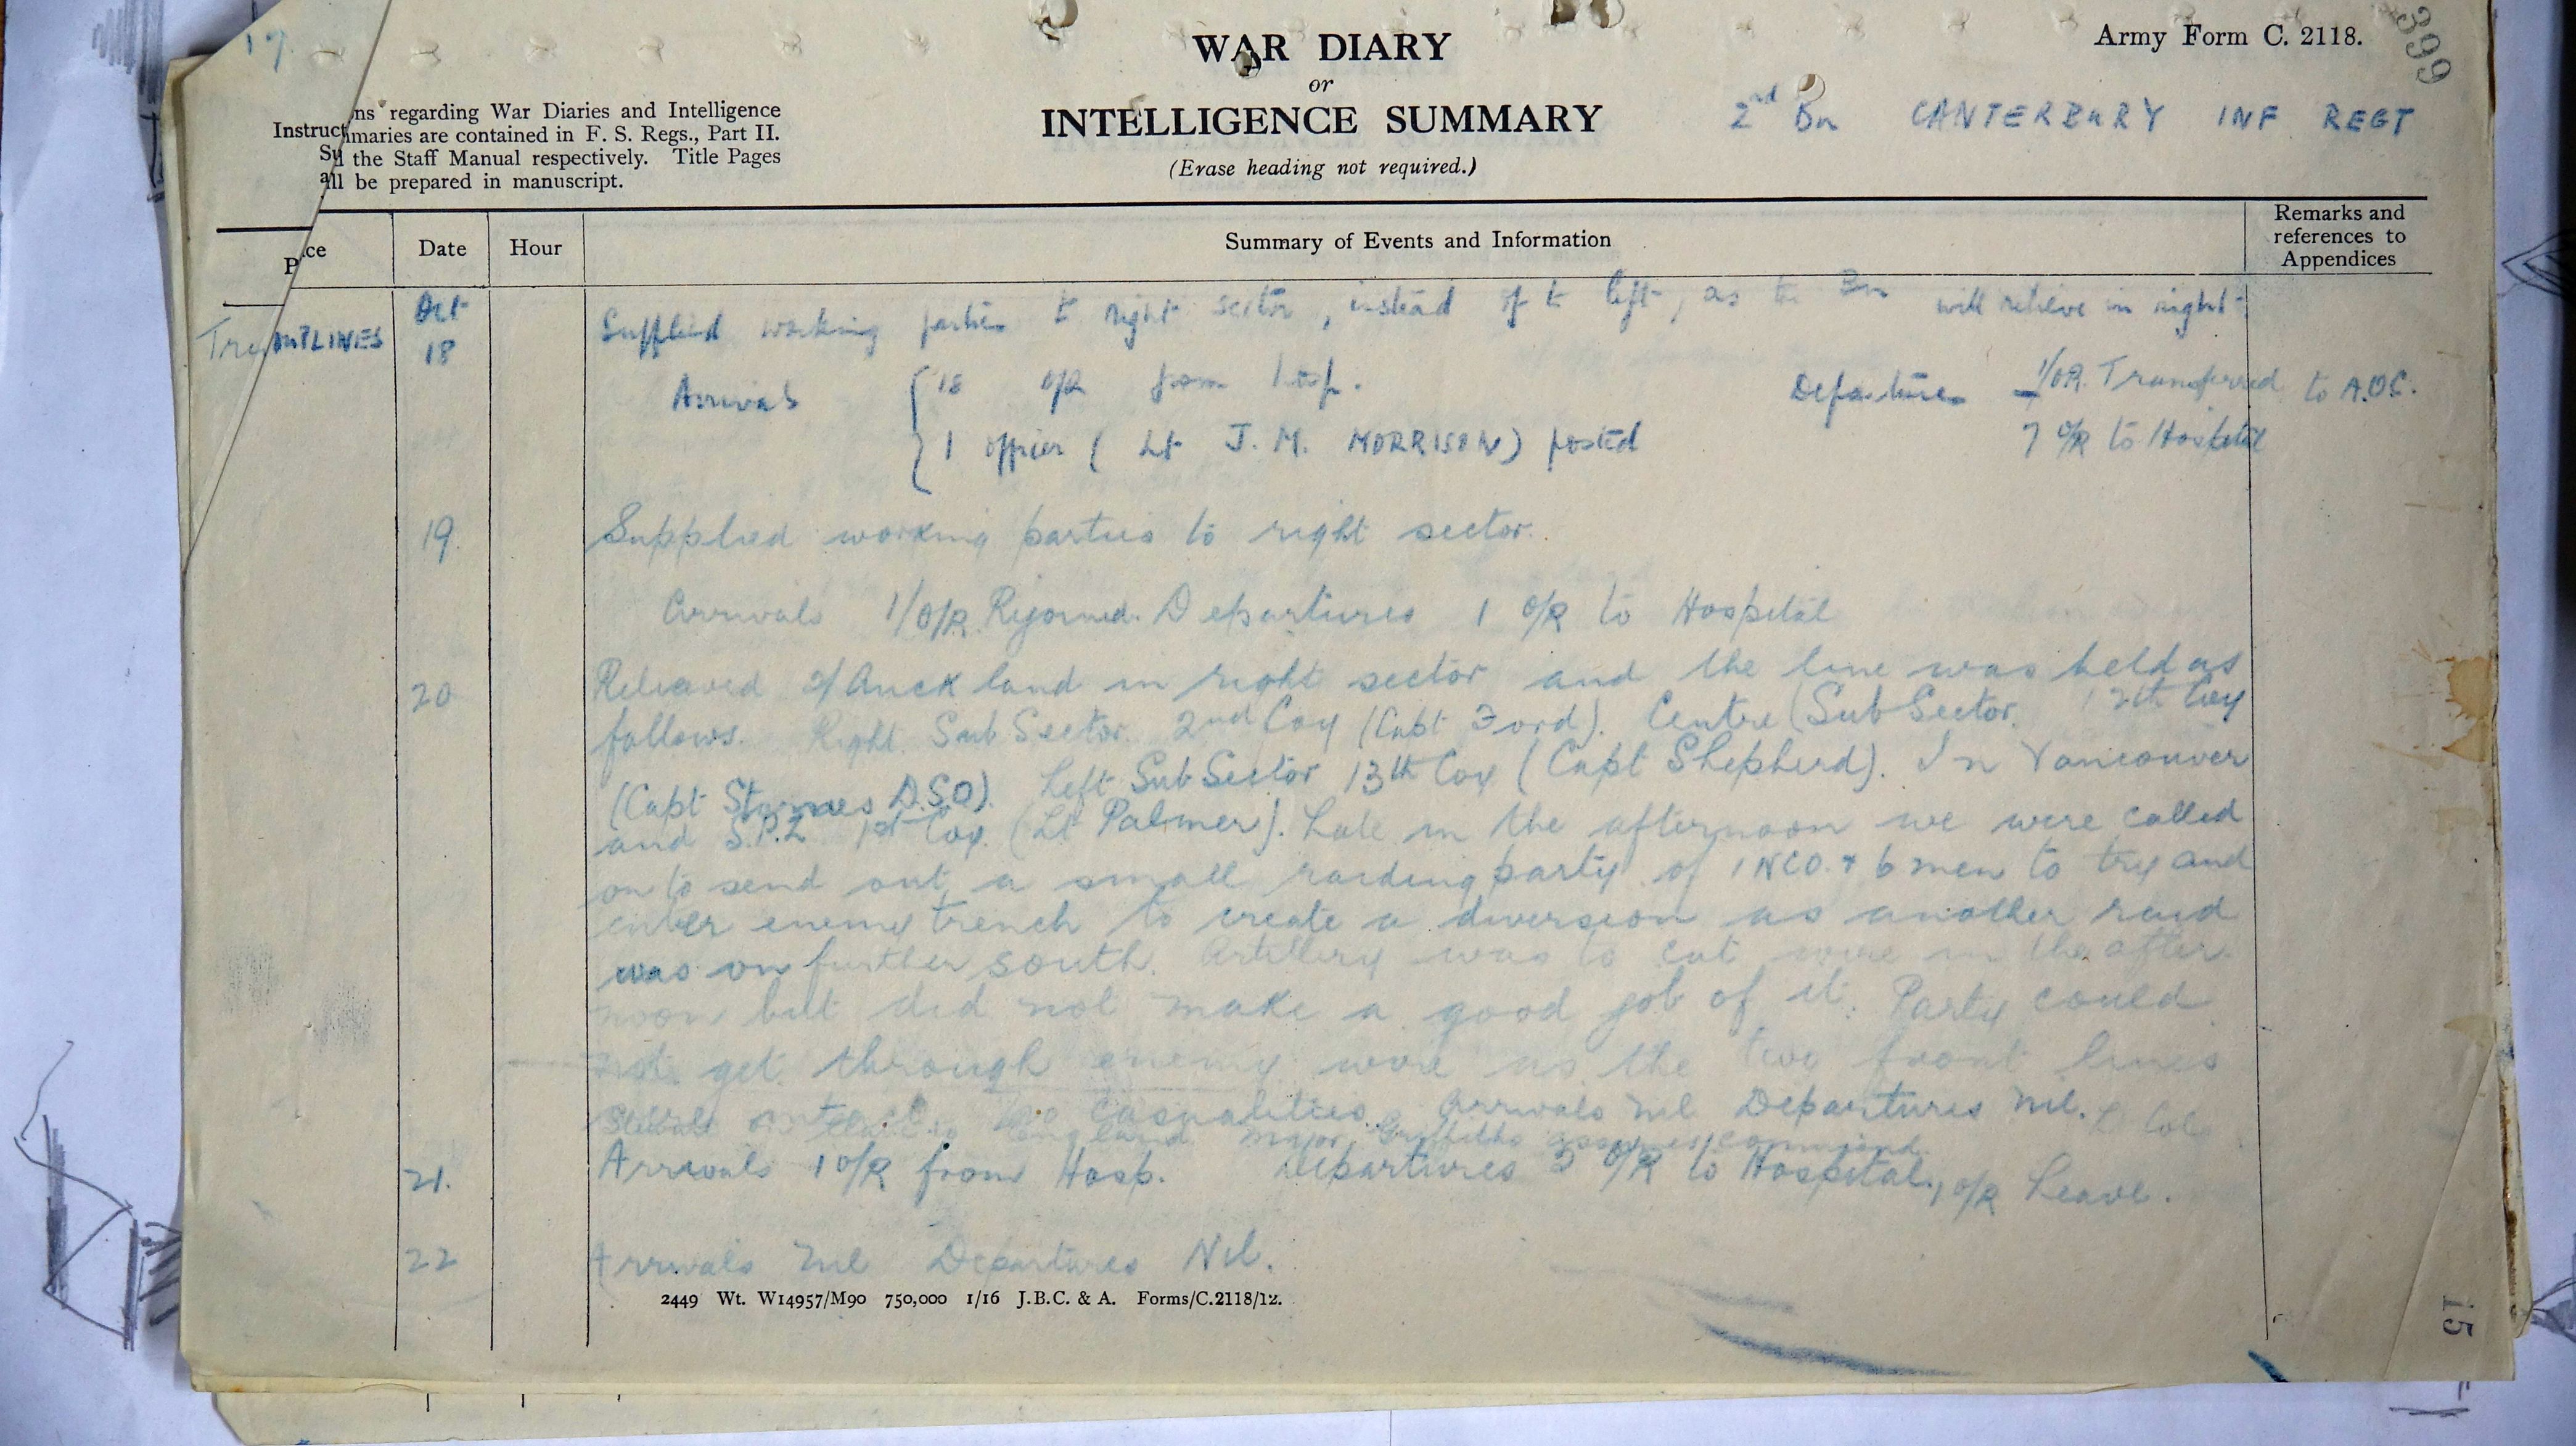 17.
WAR DIARY
or
INTELLIGENCE SUMMARY
(Erase heading not required.)
Army Form C. 2118.
399
2nd Bn CANTERBURY INF REGT
Instruct ns regarding War Diaries and Intelligence
Su maries are contained in F. S. Regs., Part II.
a d the Staff Manual respectively. Title Pages
ll be prepared in manuscript.
P ce
Date
Hour
Summary of Events and Information
Remarks and
references to
Appendices
Oct
18
Supplied working parties to right sector, instead of to left, as the Bn will relieve in right.
Arrivals { 18 O/R from Hosp. Departures 1/O.R. Transferred to A.O.C.
1 officer ( Lt J. M. MORRISON) posted 7 O/R to Hospital
19. Supplied working parties to right sector.
Arrivals 1/O/R. Rejoined. Departures 1 O/R to Hospital
20 Relieved 2/Auckland in right sector and the line was held as
follows. Right SubSector 2nd Coy (Capt Ford). Centre (SubSector. 12th Coy
(Capt Starnes D.S.O). Left SubSector 13th Coy (Capt Shepherd). In Vancouver
and S.P.Z 1st Coy. (Lt Palmer). Late in the afternoon we were called
on to send out a small raiding party of 1 NCO. + 6 men to try and
enter enemy trench to create a diversion as another raid
was on further south. Artillery was to cut wire in the after
noon but did not make a good job of it. Party could
not get through enemy wire as the two front lines
were intact. No casualties. Arrivals Nil Departures Nil. Lt Col
England Major Griffiths assumes command
21. Arrivals 1 O/R from Hosp. Departures 5 O/R to Hospital., 1 O/R Leave.
22 Arrivals Nil Departures Nil.
2449 Wt. W14957/M90 750,000 1/16 J.B.C. & A. Forms/C.2118/12.
15